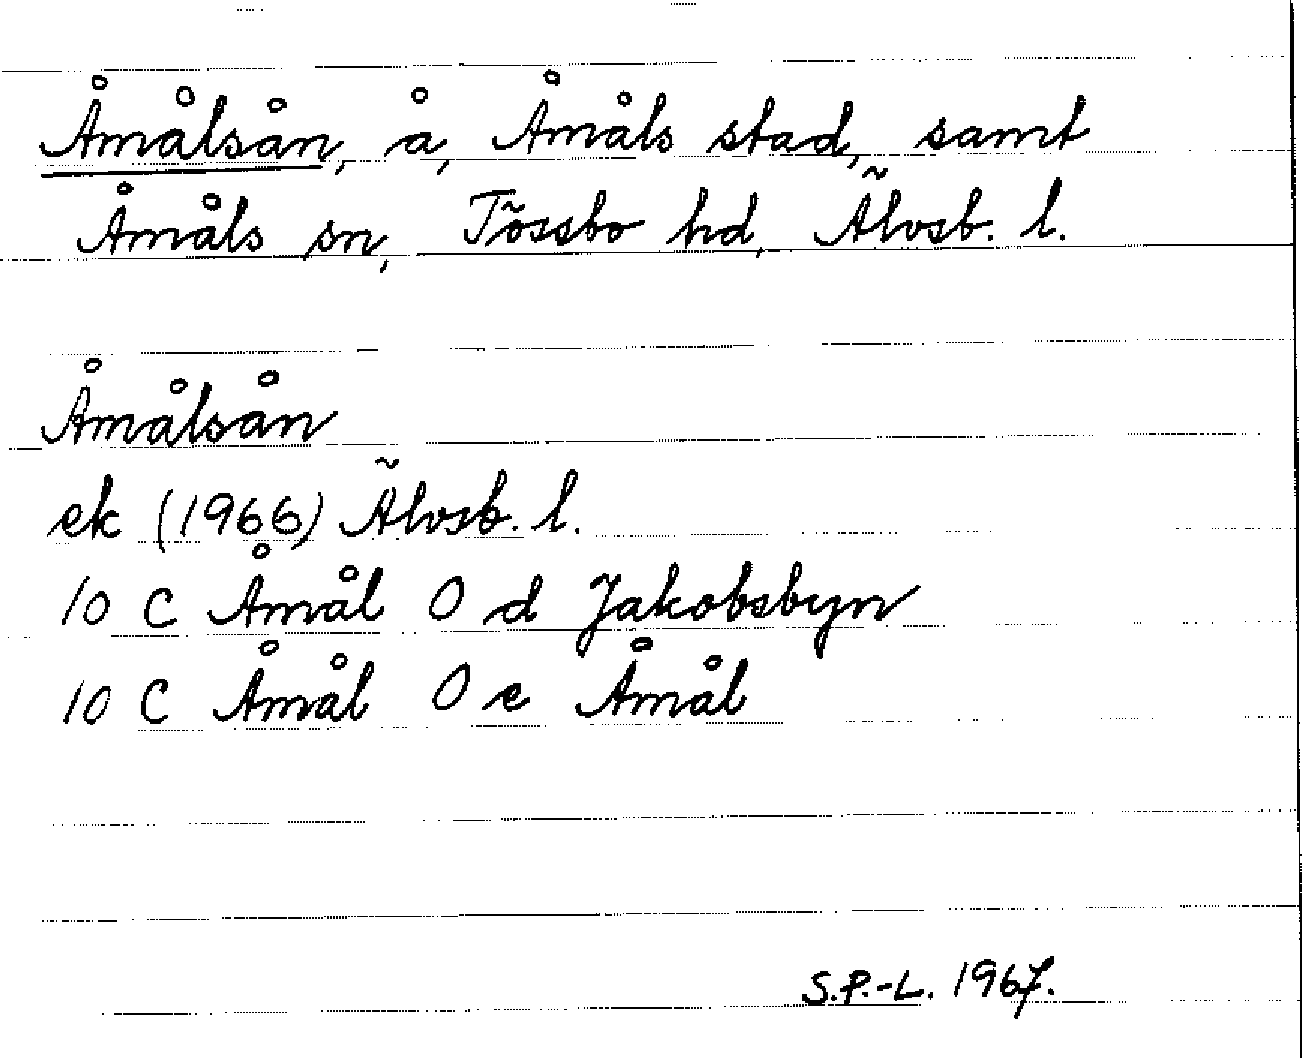 Åmålsån, å, Åmåls stad, samt
Åmåls sn, Tössbo hd, Älvsb. l.
Åmålsån
ek (1966) Älvsb. l.
10 C Åmål O d Jakobsbyn
10 C Åmål O e Åmål
S.P.-L. 1967.